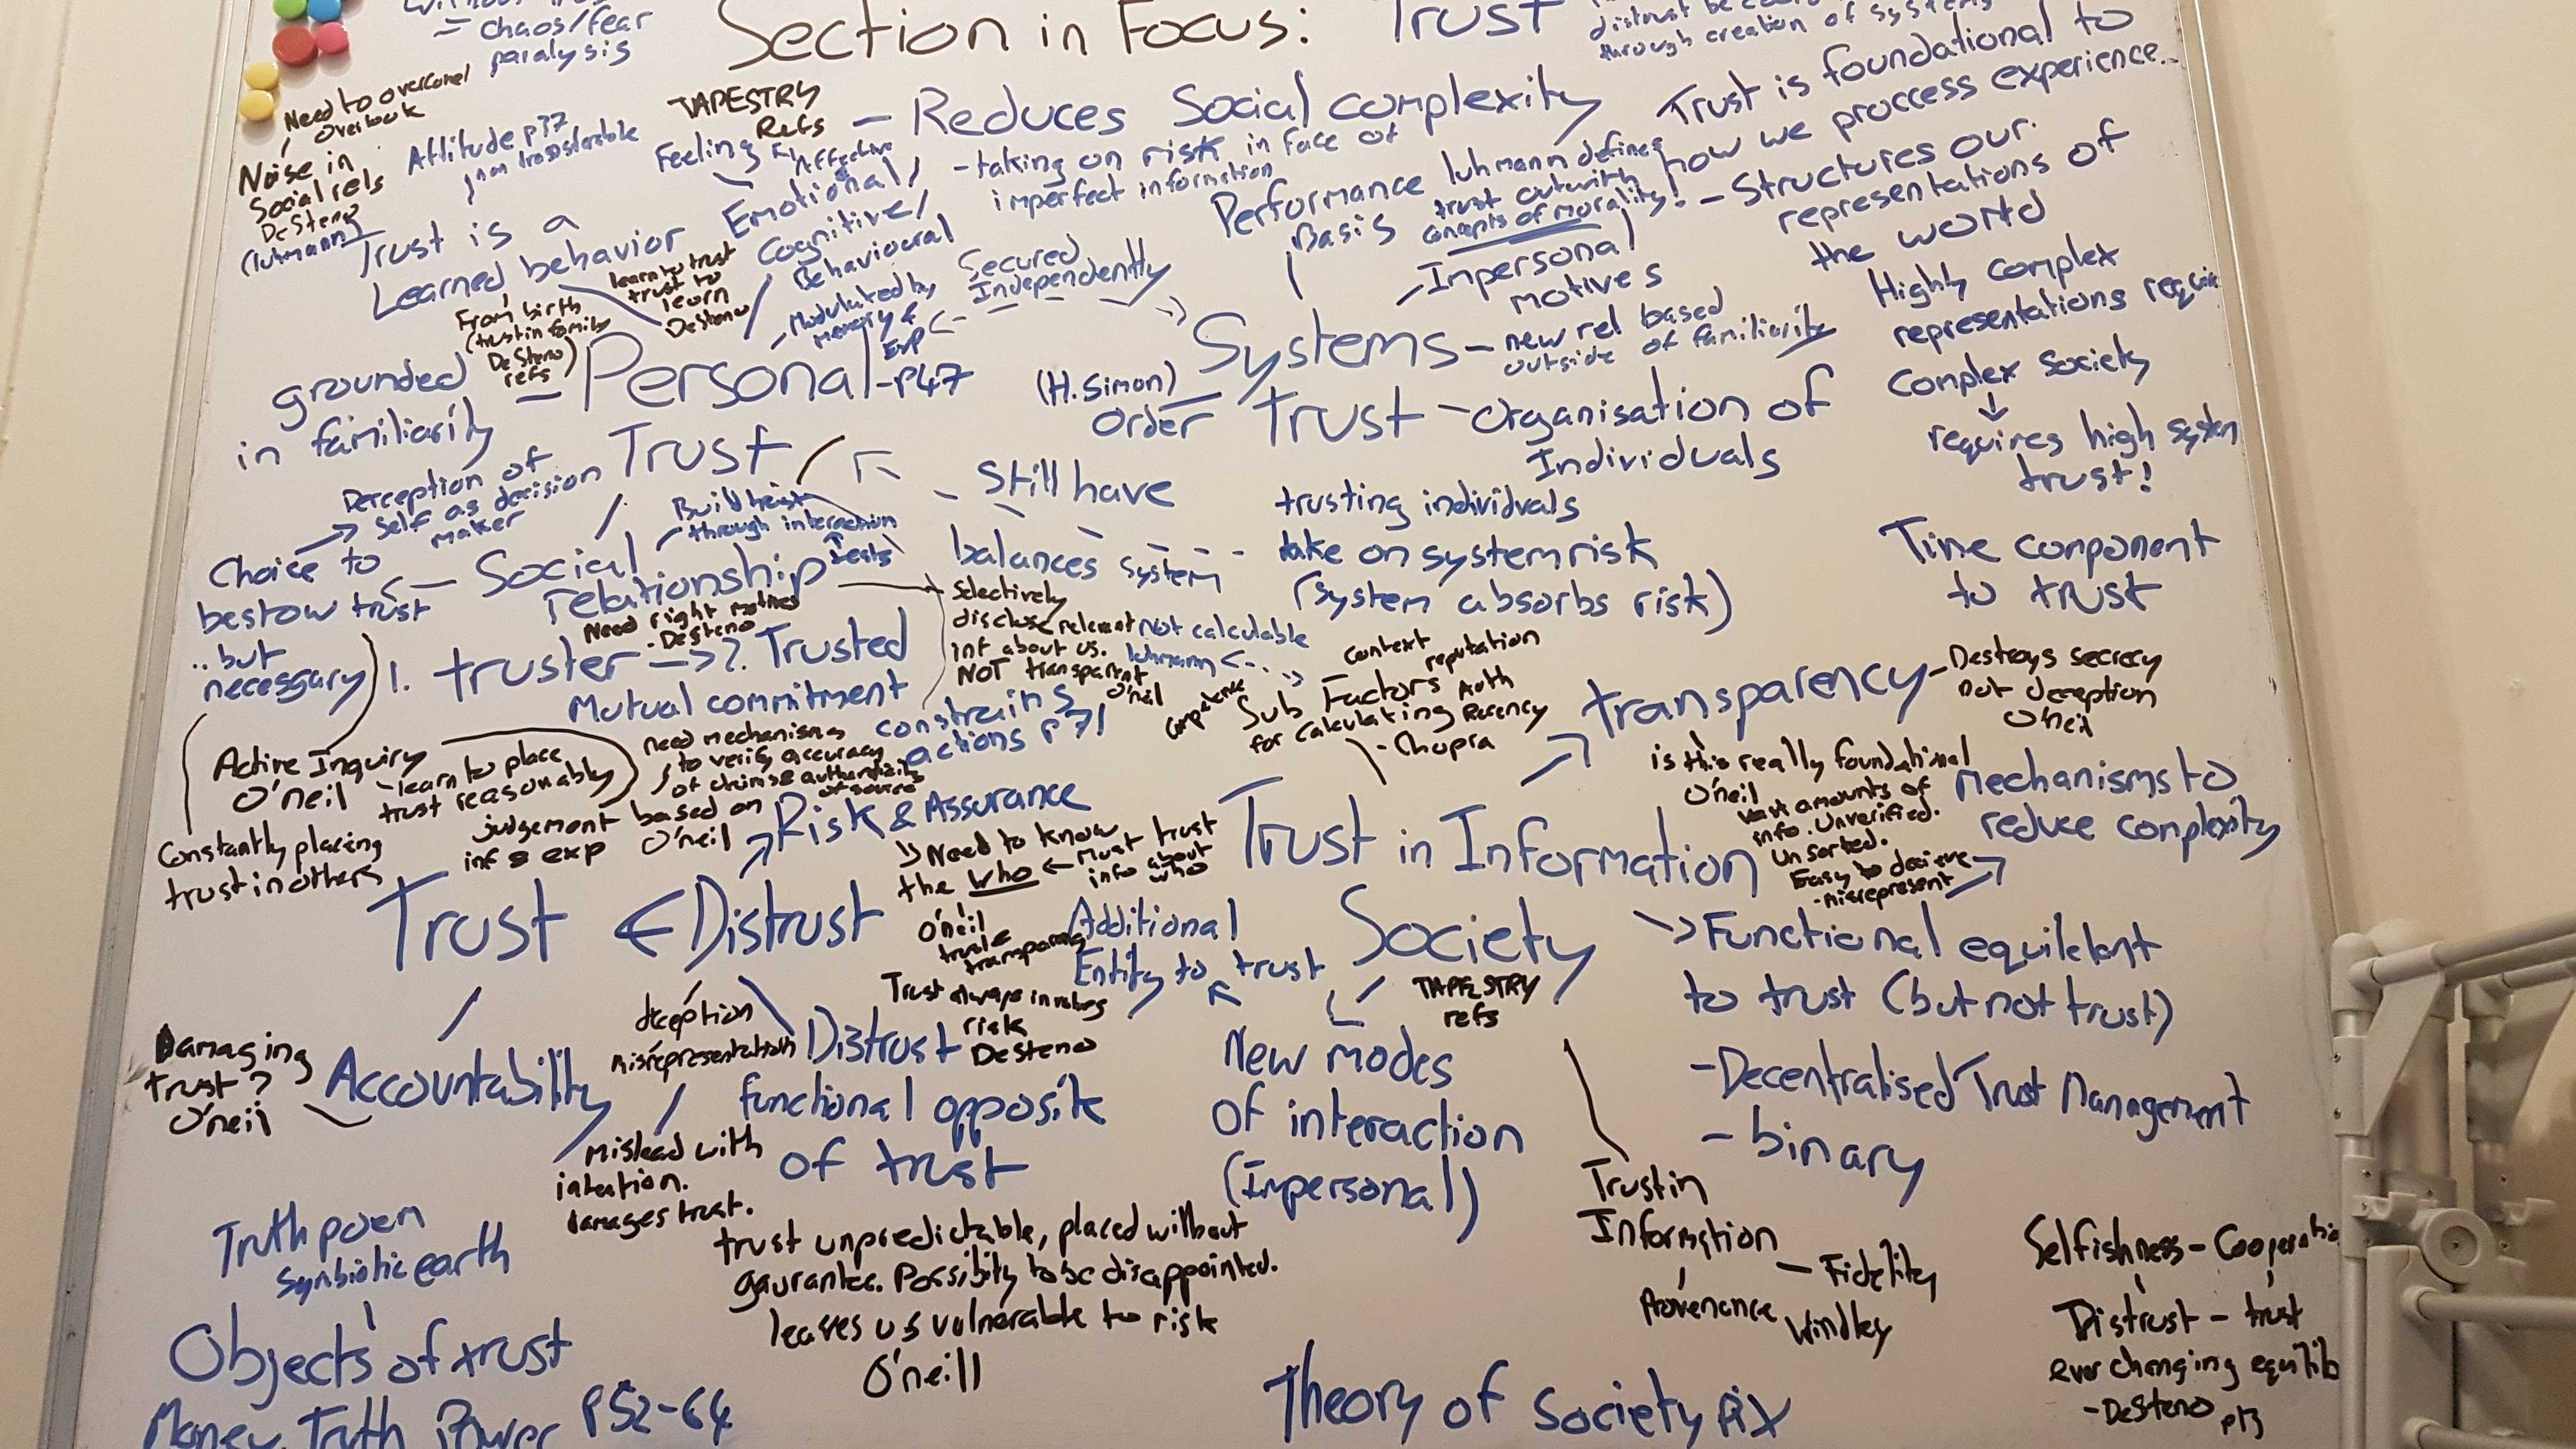 = chaos/fear
paralysis
Section in Focus: Trust
through creation of systems
Need to overcome/
overlook
Noise in
Social rels
DeSteno
(luhmann)
Attitude p77
TAPESTRY
Refs
Feeling
Affective
Emotional/
Cognitive/
Behavioural
Modulated by
Exp
- Reduces Social complexity
- taking on risk in face of
imperfect information
Trust is foundational to
how we proccess experience..
- Structures our
representations of
the world
Performance
Basis
luhmann defines
trust outwith
concepts of morality!
- Impersonal
motives
Trust is a
Learned behavior
From birth
(trust in family
DeSteno
refs)
learn to trust
trust to
learn
DeSteno
Secured
Independently
Highly complex
representations require
Complex Society
requires high system
trust!
grounded
in familiarity
- Personal - P47
Trust
(H. Simon)
Order
Systems
Trust
- new rel based
outside of familiarity
- Organisation of
Individuals
Perception of
self as decision
maker
Build trust
through interaction
tests
Still have
balances system
trusting individals
take on system risk
(system absorbs risk)
Time component
to trust
Choice to
bestow trust
.. but
necessary
Social
relationship
Need right motives
- DeSteno
1. truster -> 2. Trusted
Mutual commitment
constrains
actions p71
Selectively
disclose relevent
inf about us.
NOT transparent
O'neil
Not calculable
luhmann
Context
reputation
Sub Factors Auth
for Calculating Recency
- Chopra
competence
transparency
- Destroys secrecy
not deception
O'neil
is this really foundational
O'neil
Vast amounts of
info. Unverified.
Unsorted.
Easy to decieve
- misrepresent
Mechanisms to
reduce complexity
Active Inquiry
O'neil
- learn to place
trust reasonably
judgement based on
inf & exp O'neil
need mechanisms
to verify accuracy
of claims & authenticity
of source
Risk & Assurance
Constantly placing
trust in others
Need to know
the who
O'neil
Must trust
info about
who
Trust in Information
Society
TAPESTRY
refs
Trust Distrust
trust &
transparency
Additional
Entity to trust
Functional equilelant
to trust (but not trust)
- Decentralised Trust Management
- binary
Trust always involves
risk
DeSteno
Damaging
trust?
O'neil
Accountability
deception
misrepresentation
Distrust
functional opposite
of trust
New modes
of interaction
(Impersonal)
mislead with
intention.
damages trust.
Truth poem
Symbiotic earth
trust unpredictable, placed without
gaurantee. Possibility to be disappointed.
leaves us vulnerable to risk
O'neill
Trust in
Information
- Fidelity
Provenance
Windley
Selfishness - Cooperatio
Distrust - trust
ever changing equilib
- DeSteno p13
Objects of trust
Money, Truth, Power P52-64
Theory of Society pix